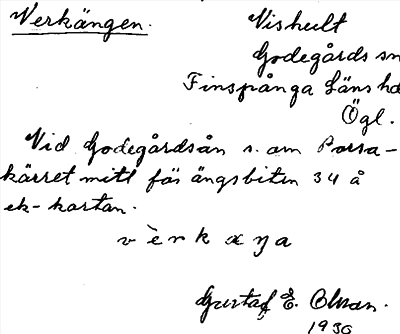 Verkängen.
Vishult
Godegårds sn
Finspånga Läns hd
Ögl.
Vid Godegårdsån s. om Porsa-
kärret mitt för ängsbiten 34 å
ek-kartan.
v è r k æ ŋ a
Gustaf E. Olsson.
1930